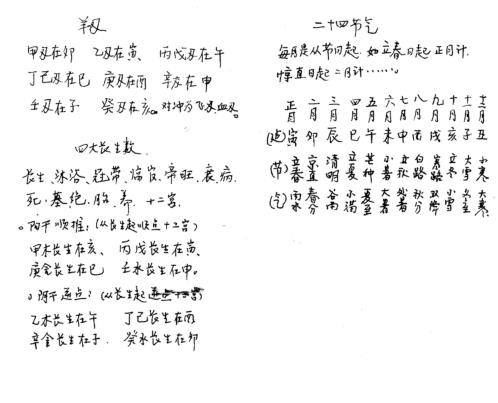 羊刃
甲刃在卯 乙刃在寅、丙戊刃在午
丁己刃在巳 庚刃在酉 辛刃在申
壬刃在子 癸刃在亥。对冲为飞刃血刃。
四大长生数
长生、沐浴、冠带、临官、帝旺、衰、病、
死、墓、绝、胎、养、十二宫。
。阳干顺推:(从长生起顺点十二宫)
甲木长生在亥、丙戊长生在寅、
庚金长生在巳 壬水长生在申。
。阴干逆点:(从长生起逆点十二宫)
乙木长生在午 丁己长生在酉
辛金长生在子、癸水长生在卯
二十四节气
每月是从节日起,如立春日起正月计.
惊直日起二月计……。
正月 二月 三月 四月 五月 六月 七月 八月 九月 十月 十一月 十二月
寅 卯 辰 巳 午 未 申 酉 戌 亥 子 丑
(节) 立春 京直 清明 立夏 芒种 小暑 立秋 白路 寒路 立冬 大雪 小寒
(气) 雨水 春分 谷雨 小满 夏至 大暑 处暑 秋分 双降 小雪 冬至 大寒